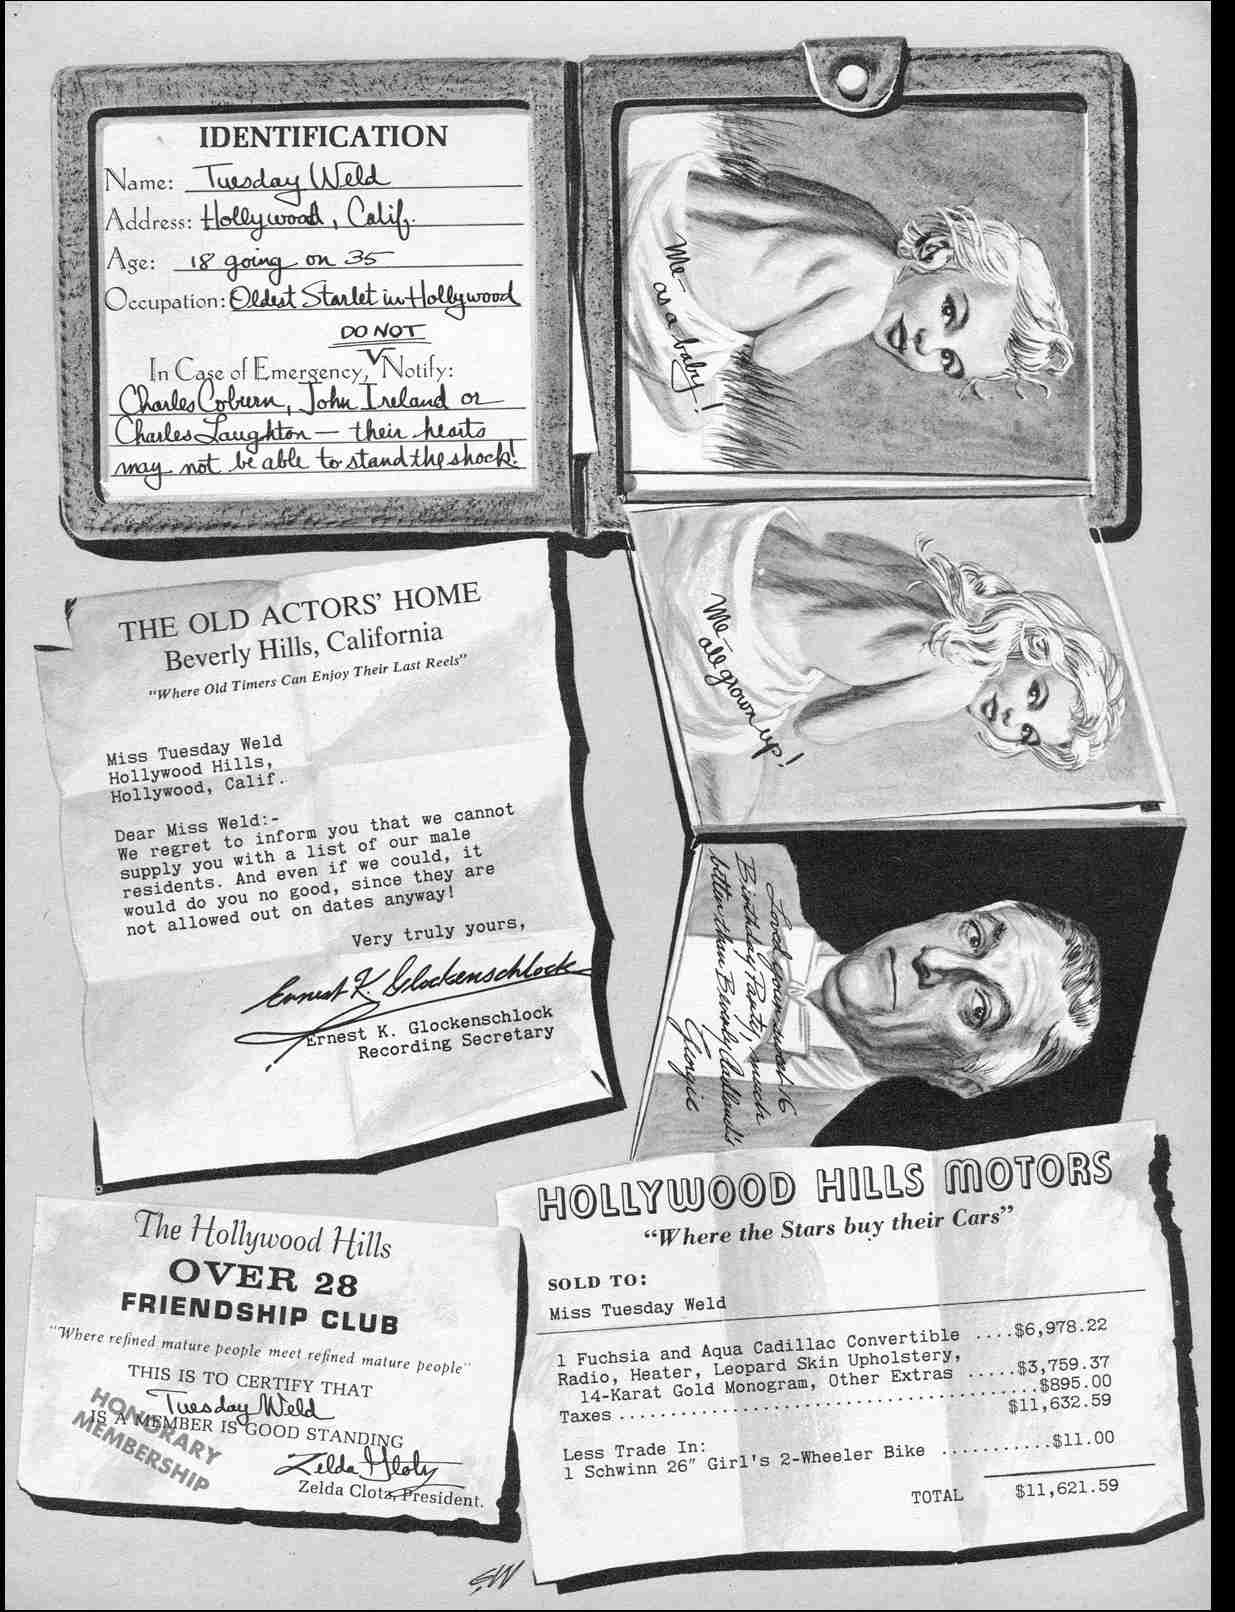 IDENTIFICATION
Name: Tuesday Weld
Address: Hollywood, Calif.
Age: 18 going on 35
Occupation: Oldest Starlet in Hollywood
DO NOT
In Case of Emergency, Notify:
Charles Coburn, John Ireland or
Charles Laughton — their hearts
may not be able to stand the shock!
Me—
as a baby!
Me—
all grown up!
Loved your sweet 16
Birthday Party, much
better than Beverly Aadland's
Georgie
THE OLD ACTORS' HOME
Beverly Hills, California
"Where Old Timers Can Enjoy Their Last Reels"
Miss Tuesday Weld
Hollywood Hills,
Hollywood, Calif.
Dear Miss Weld:-
We regret to inform you that we cannot
supply you with a list of our male
residents. And even if we could, it
would do you no good, since they are
not allowed out on dates anyway!
Very truly yours,
Ernest K. Glockenschlock
Ernest K. Glockenschlock
Recording Secretary
The Hollywood Hills
OVER 28
FRIENDSHIP CLUB
"Where refined mature people meet refined mature people"
THIS IS TO CERTIFY THAT
Tuesday Weld
IS A MEMBER IS GOOD STANDING
HONORARY
MEMBERSHIP
Zelda Clotz
Zelda Clotz, President.
HOLLYWOOD HILLS MOTORS
"Where the Stars buy their Cars"
SOLD TO:
Miss Tuesday Weld
1 Fuchsia and Aqua Cadillac Convertible ....$6,978.22
Radio, Heater, Leopard Skin Upholstery,
14-Karat Gold Monogram, Other Extras .....$3,759.37
Taxes ....................................$895.00
$11,632.59
Less Trade In:
1 Schwinn 26" Girl's 2-Wheeler Bike ...........$11.00
TOTAL $11,621.59